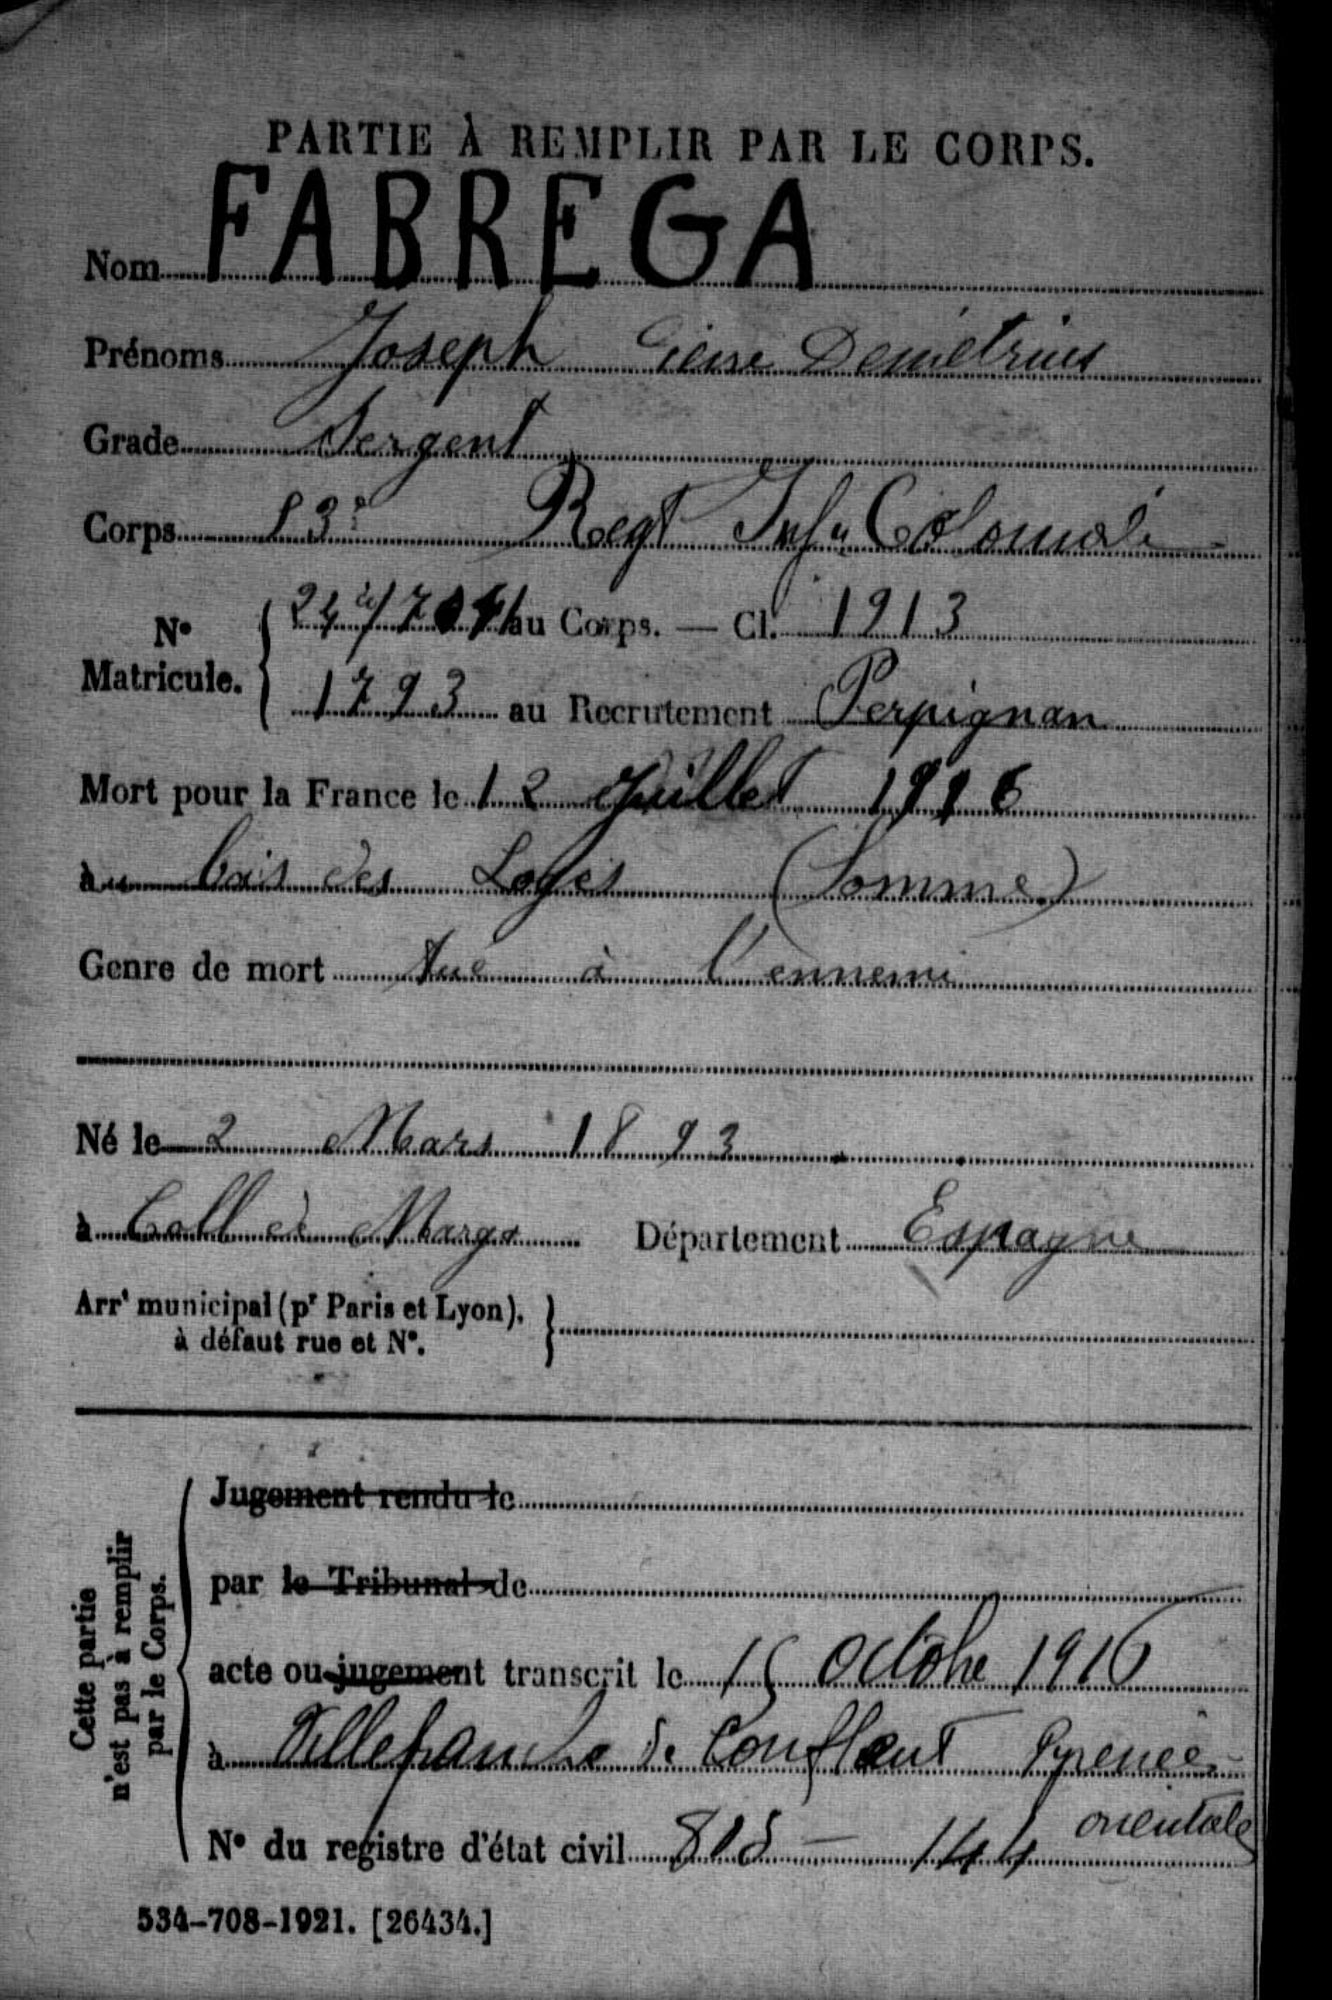 PARTIE À REMPLIR PAR LE CORPS.
Nom FABREGA
Prénoms Joseph Pierre Demetrius
Grade Sergent
Corps 53e Regt Infie Coloniale
N° Matricule. au Corps. — Cl. 1913
1793 au Recrutement Perpignan
Mort pour la France le 12 Juillet 1916
au bois des Loges (Somme)
Genre de mort tué à l'ennemi
Né le 2 Mars 1893
à Coll de Département Espagne
Arrt municipal (pr Paris et Lyon), à défaut rue et N°.
Cette partie n'est pas à remplir par le Corps.
Jugement rendu le
par le Tribunal de
acte ou jugement transcrit le 15 Octobre 1916
à Villefranche de Conflent Pyrenées
orientales
N° du registre d'état civil 144
534-708-1921. [26434.]